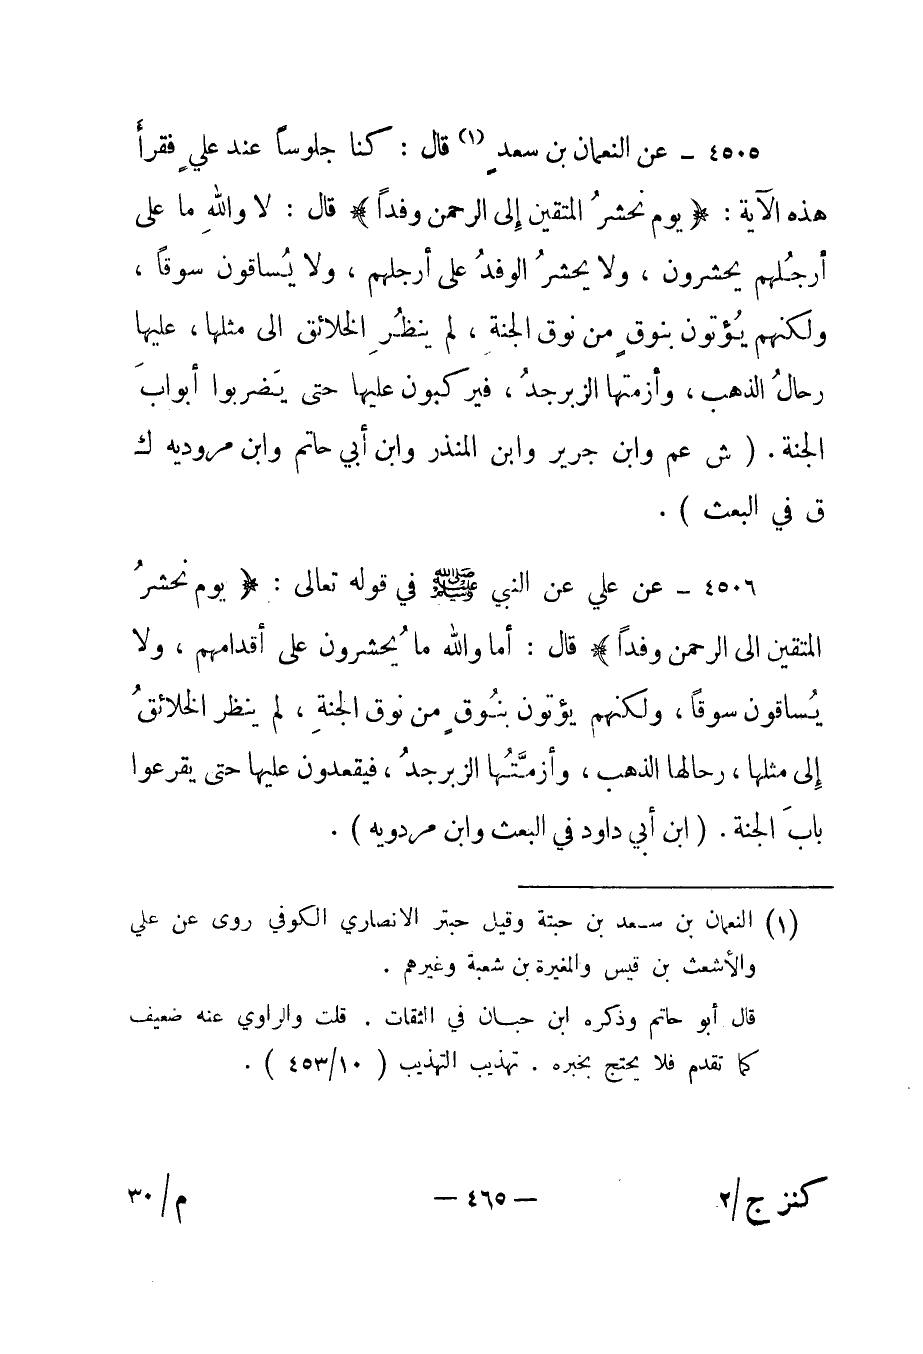 ٤٥٠٥ ـ عن النعمان بن سعدٍ (١) قال : كنا جلوساً عند عليٍ فقرأَ
هذه الآية : ﴿ يوم نحشرُ المتقين إلى الرحمن وفداً ﴾ قال : لا واللهِ ما على
أرجُلهم يحشرون ، ولا يحشرُ الوفدُ على أرجلهم ، ولا يُساقون سوقاً ،
ولكنهم يُؤتون بنوقٍ من نوق الجنةِ ، لم ينظُرِ الخلائق الى مثلها ، عليها
رحالُ الذهب ، وأزمتها الزبرجدُ ، فيركبون عليها حتى يَضربوا أبوابَ
الجنة . ( ش عم وابن جرير وابن المنذر وابن أبي حاتم وابن مروديه ك
ق في البعث ) .
٤٥٠٦ ـ عن علي عن النبي ﷺ في قوله تعالى : ﴿ يوم نحشرُ
المتقين الى الرحمن وفداً ﴾ قال : أما والله ما يُحشرون على أقدامهم ، ولا
يُساقون سوقاً ، ولكنهم يؤتون بنُوقٍ من نوق الجنةِ ، لم ينظر الخلائقُ
إلى مثلها ، رحالها الذهب ، وأزمَّتُها الزبرجدُ ، فيقعدون عليها حتى يقرعوا
بابَ الجنة . ( ابن أبي داود في البعث وابن مردويه ) .
(١) النعمان بن سعد بن حبتة وقيل حبتر الانصاري الكوفي روى عن علي
والأشعث بن قيس والمغيرة بن شعبة وغيرهم .
قال أبو حاتم وذكره ابن حبان في الثقات . قلت والراوي عنه ضعيف
كما تقدم فلا يحتج بخبره . تهذيب التهذيب ( ٤٥٣/١٠ ) .
كنز ج/٢ — ٤٦٥ — م/٣٠